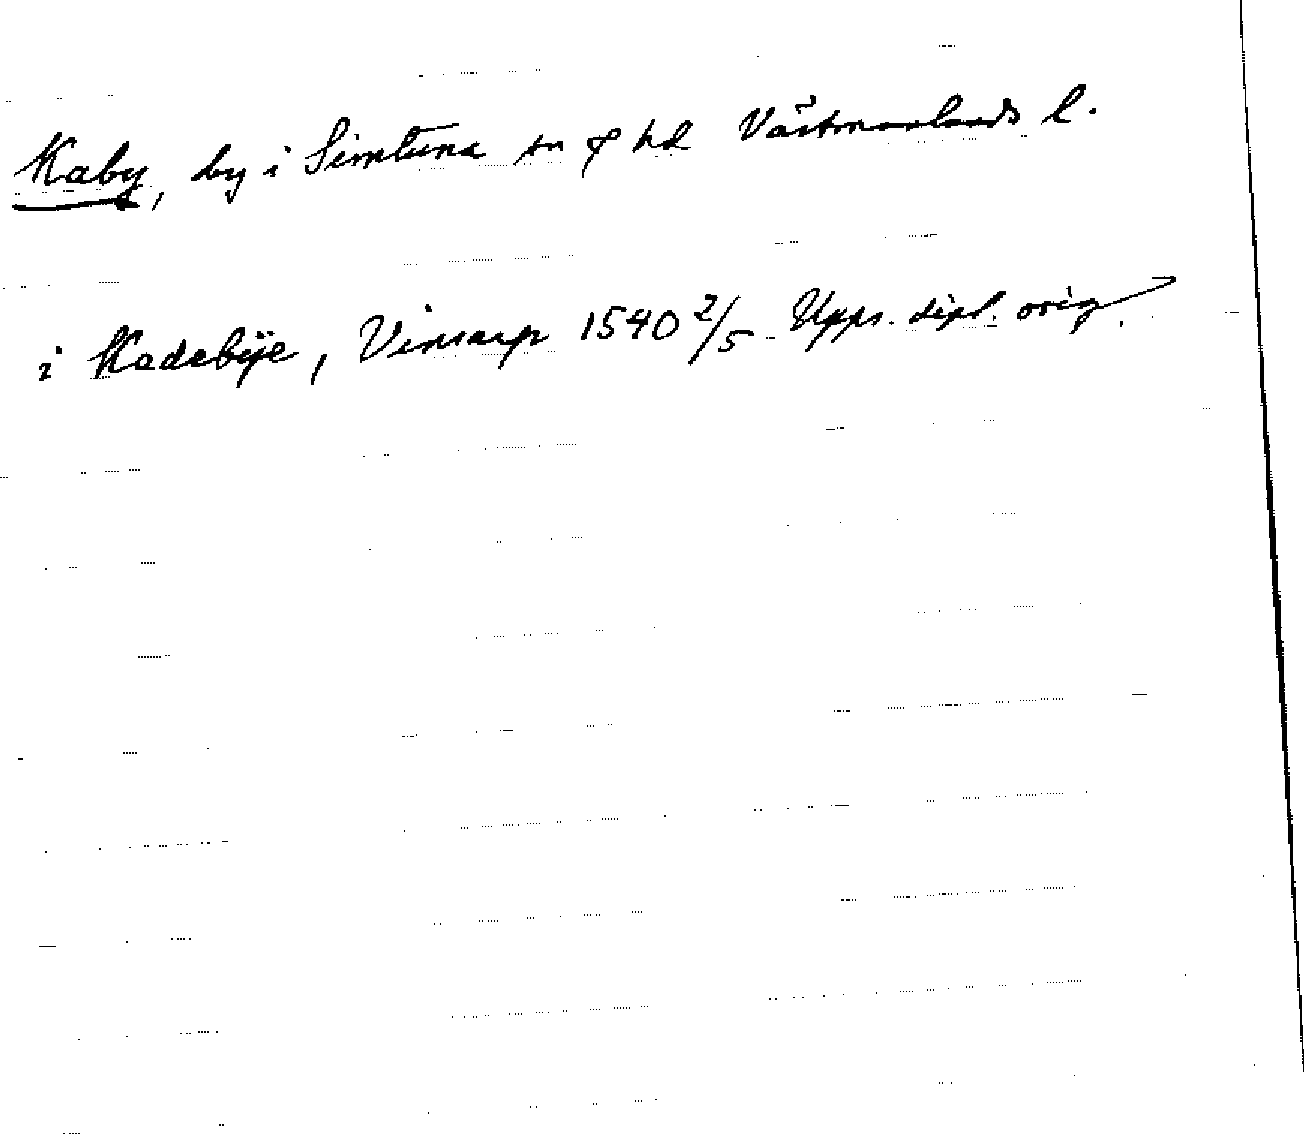 Kaby, by i Simtuna sn & hd Västmanlands l.
i Kadebÿe, Vinsarp 1540 2/5 Upps. dipl. orig.